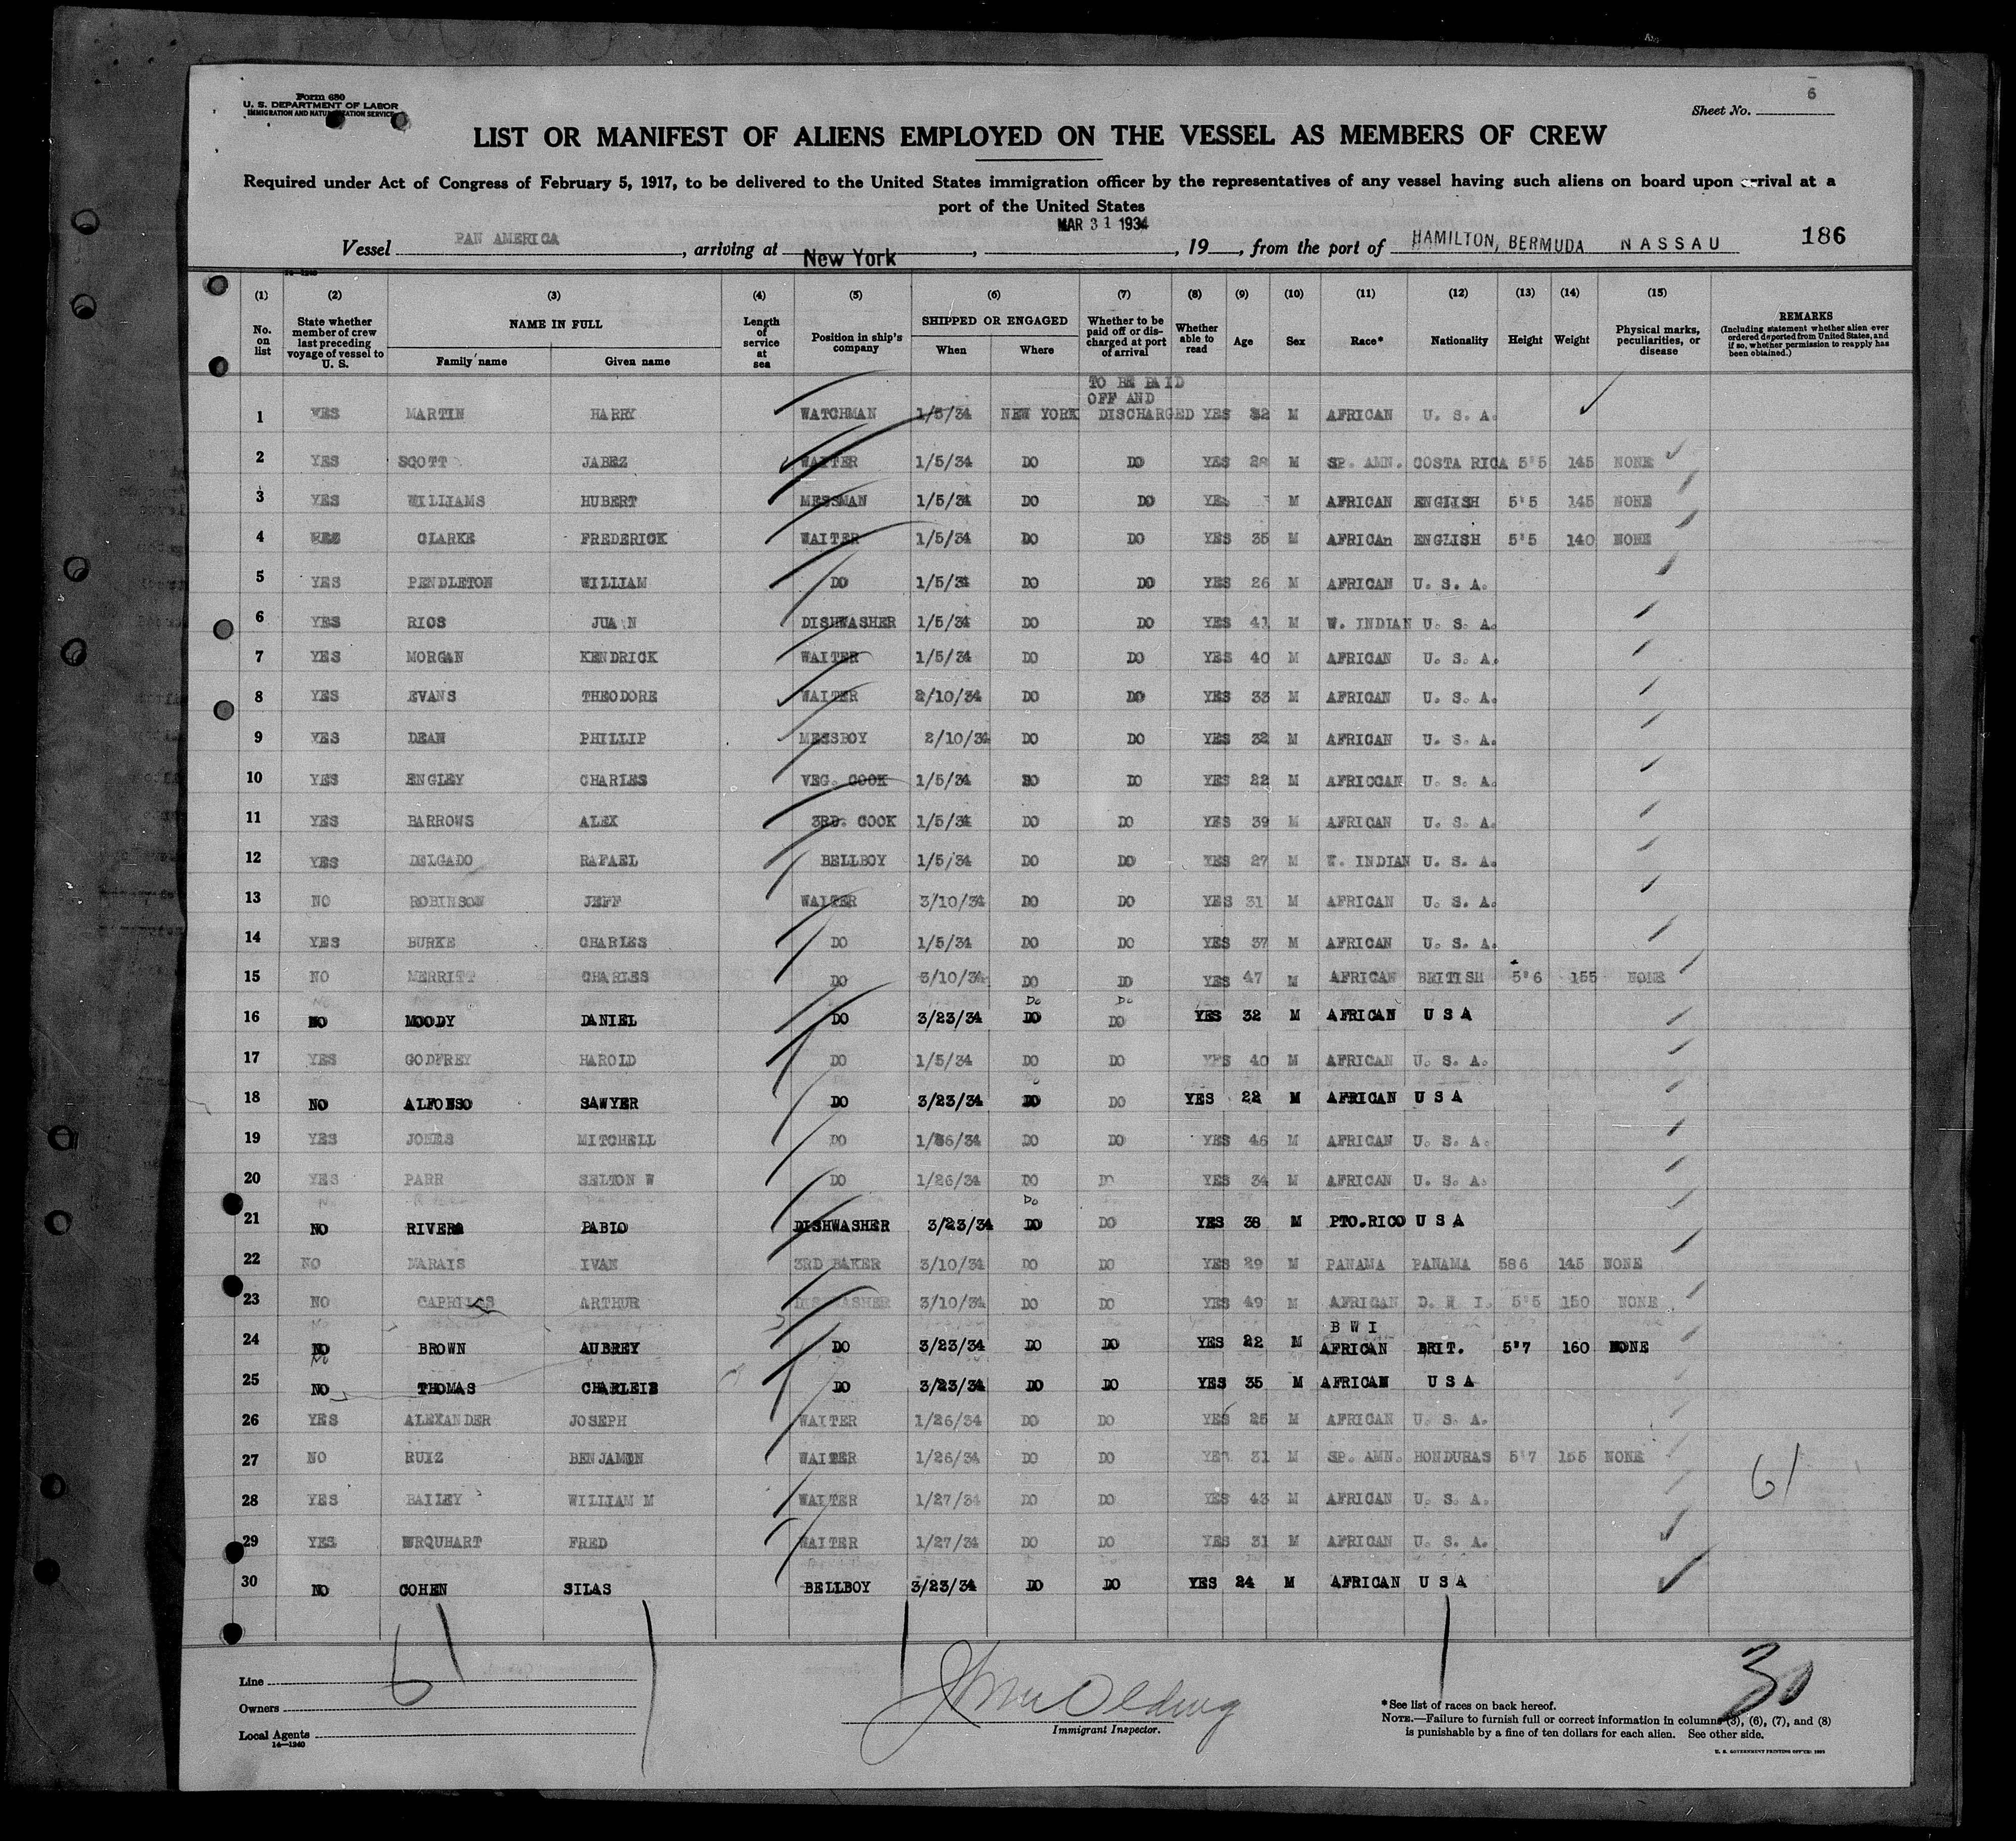 Form 680
U. S. DEPARTMENT OF LABOR
IMMIGRATION AND NATURALIZATION SERVICE
Sheet No. 6
LIST OR MANIFEST OF ALIENS EMPLOYED ON THE VESSEL AS MEMBERS OF CREW
Required under Act of Congress of February 5, 1917, to be delivered to the United States immigration officer by the representatives of any vessel having such aliens on board upon arrival at a
port of the United States
MAR 31 1934
Vessel PAN AMERICA, arriving at New York, 19, from the port of HAMILTON, BERMUDA NASSAU 186
14-1240
(1) (2) (3) (4) (5) (6) (7) (8) (9) (10) (11) (12) (13) (14) (15)
No. on list State whether member of crew last preceding voyage of vessel to U. S. NAME IN FULL Family name Given name Length of service at sea Position in ship's company SHIPPED OR ENGAGED When Where Whether to be paid off or discharged at port of arrival Whether able to read Age Sex Race* Nationality Height Weight Physical marks, peculiarities, or disease REMARKS (Including statement whether alien ever ordered deported from United States, and if so, whether permission to reapply has been obtained.)
TO BE PAID
OFF AND
1 YES MARTIN HARRY WATCHMAN 1/5/34 NEW YORK DISCHARGED YES 32 M AFRICAN U. S. A.
2 YES SCOTT JABEZ WAITER 1/5/34 DO DO YES 28 M SP. AMN. COSTA RICA 5'5 145 NONE
3 YES WILLIAMS HUBERT MESSMAN 1/5/34 DO DO YES M AFRICAN ENGLISH 5'5 145 NONE
4 YES CLARKE FREDERICK WAITER 1/5/34 DO DO YES 35 M AFRICAn ENGLISH 5'5 140 NONE
5 YES PENDLETON WILLIAM DO 1/5/34 DO DO YES 26 M AFRICAN U. S. A.
6 YES RIOS JUA N DISHWASHER 1/5/34 DO DO YES 41 M W. INDIAN U. S. A.
7 YES MORGAN KENDRICK WAITER 1/5/34 DO DO YES 40 M AFRICAN U. S. A.
8 YES EVANS THEODORE WAITER 2/10/34 DO DO YES 33 M AFRICAN U. S. A.
9 YES DEAN PHILLIP MESSBOY 2/10/34 DO DO YES 32 M AFRICAN U. S. A.
10 YES ENGLEY CHARLES VEG. COOK 1/5/34 DO DO YES 22 M AFRICCAN U. S. A.
11 YES BARROWS ALEX 3RD. COOK 1/5/34 DO DO YES 39 M AFRICAN U. S. A.
12 YES DELGADO RAFAEL BELLBOY 1/5/34 DO DO YES 27 M W. INDIAN U. S. A.
13 NO ROBINSON JEFF WAITER 3/10/34 DO DO YES 31 M AFRICAN U. S. A.
14 YES BURKE CHARLES DO 1/5/34 DO DO YES 37 M AFRICAN U. S. A.
15 NO MERRITT CHARLES DO 3/10/34 DO DO YES 47 M AFRICAN BRITISH 5'6 155 NONE
Do Do
16 NO MOODY DANIEL DO 3/23/34 DO DO YES 32 M AFRICAN U S A
17 YES GODFREY HAROLD DO 1/5/34 DO DO YES 40 M AFRICAN U. S. A.
18 NO ALFONSO SAWYER DO 3/23/34 DO DO YES 22 M AFRICAN U S A
19 YES JONES MITCHELL DO 1/26/34 DO DO YES 46 M AFRICAN U. S. A.
20 YES PARR SELTON W DO 1/26/34 DO DO YES 34 M AFRICAN U. S. A.
Do
21 NO RIVERA PABIO DISHWASHER 3/23/34 DO DO YES 38 M PTO.RICO U S A
22 NO MARAIS IVAN 3RD BAKER 3/10/34 DO DO YES 29 M PANAMA PANAMA 586 145 NONE
23 NO CAPRILES ARTHUR DISHWASHER 3/10/34 DO DO YES 49 M AFRICAN D. W I. 5'5 150 NONE
B W I
24 NO BROWN AUBREY DO 3/23/34 DO DO YES 22 M AFRICAN BRIT. 5'7 160 NONE
No
25 NO THOMAS CHARLEIS DO 3/23/34 DO DO YES 35 M AFRICAN U S A
26 YES ALEXANDER JOSEPH WAITER 1/26/34 DO DO YES 25 M AFRICAN U. S. A.
27 NO RUIZ BENJAMIN WAITER 1/26/34 DO DO YES 31 M SP. AMN. HONDURAS 5'7 155 NONE
28 YES BAILEY WILLIAM M WAITER 1/27/34 DO DO YES 43 M AFRICAN U. S. A.
61
29 YES URQUHART FRED WAITER 1/27/34 DO DO YES 31 M AFRICAN U. S. A.
30 NO COHEN SILAS BELLBOY 3/23/34 DO DO YES 24 M AFRICAN U S A
61
30
Line
Owners
Local Agents
14-1240
Immigrant Inspector.
*See list of races on back hereof.
NOTE.—Failure to furnish full or correct information in columns (3), (6), (7), and (8)
is punishable by a fine of ten dollars for each alien. See other side.
U. S. GOVERNMENT PRINTING OFFICE: